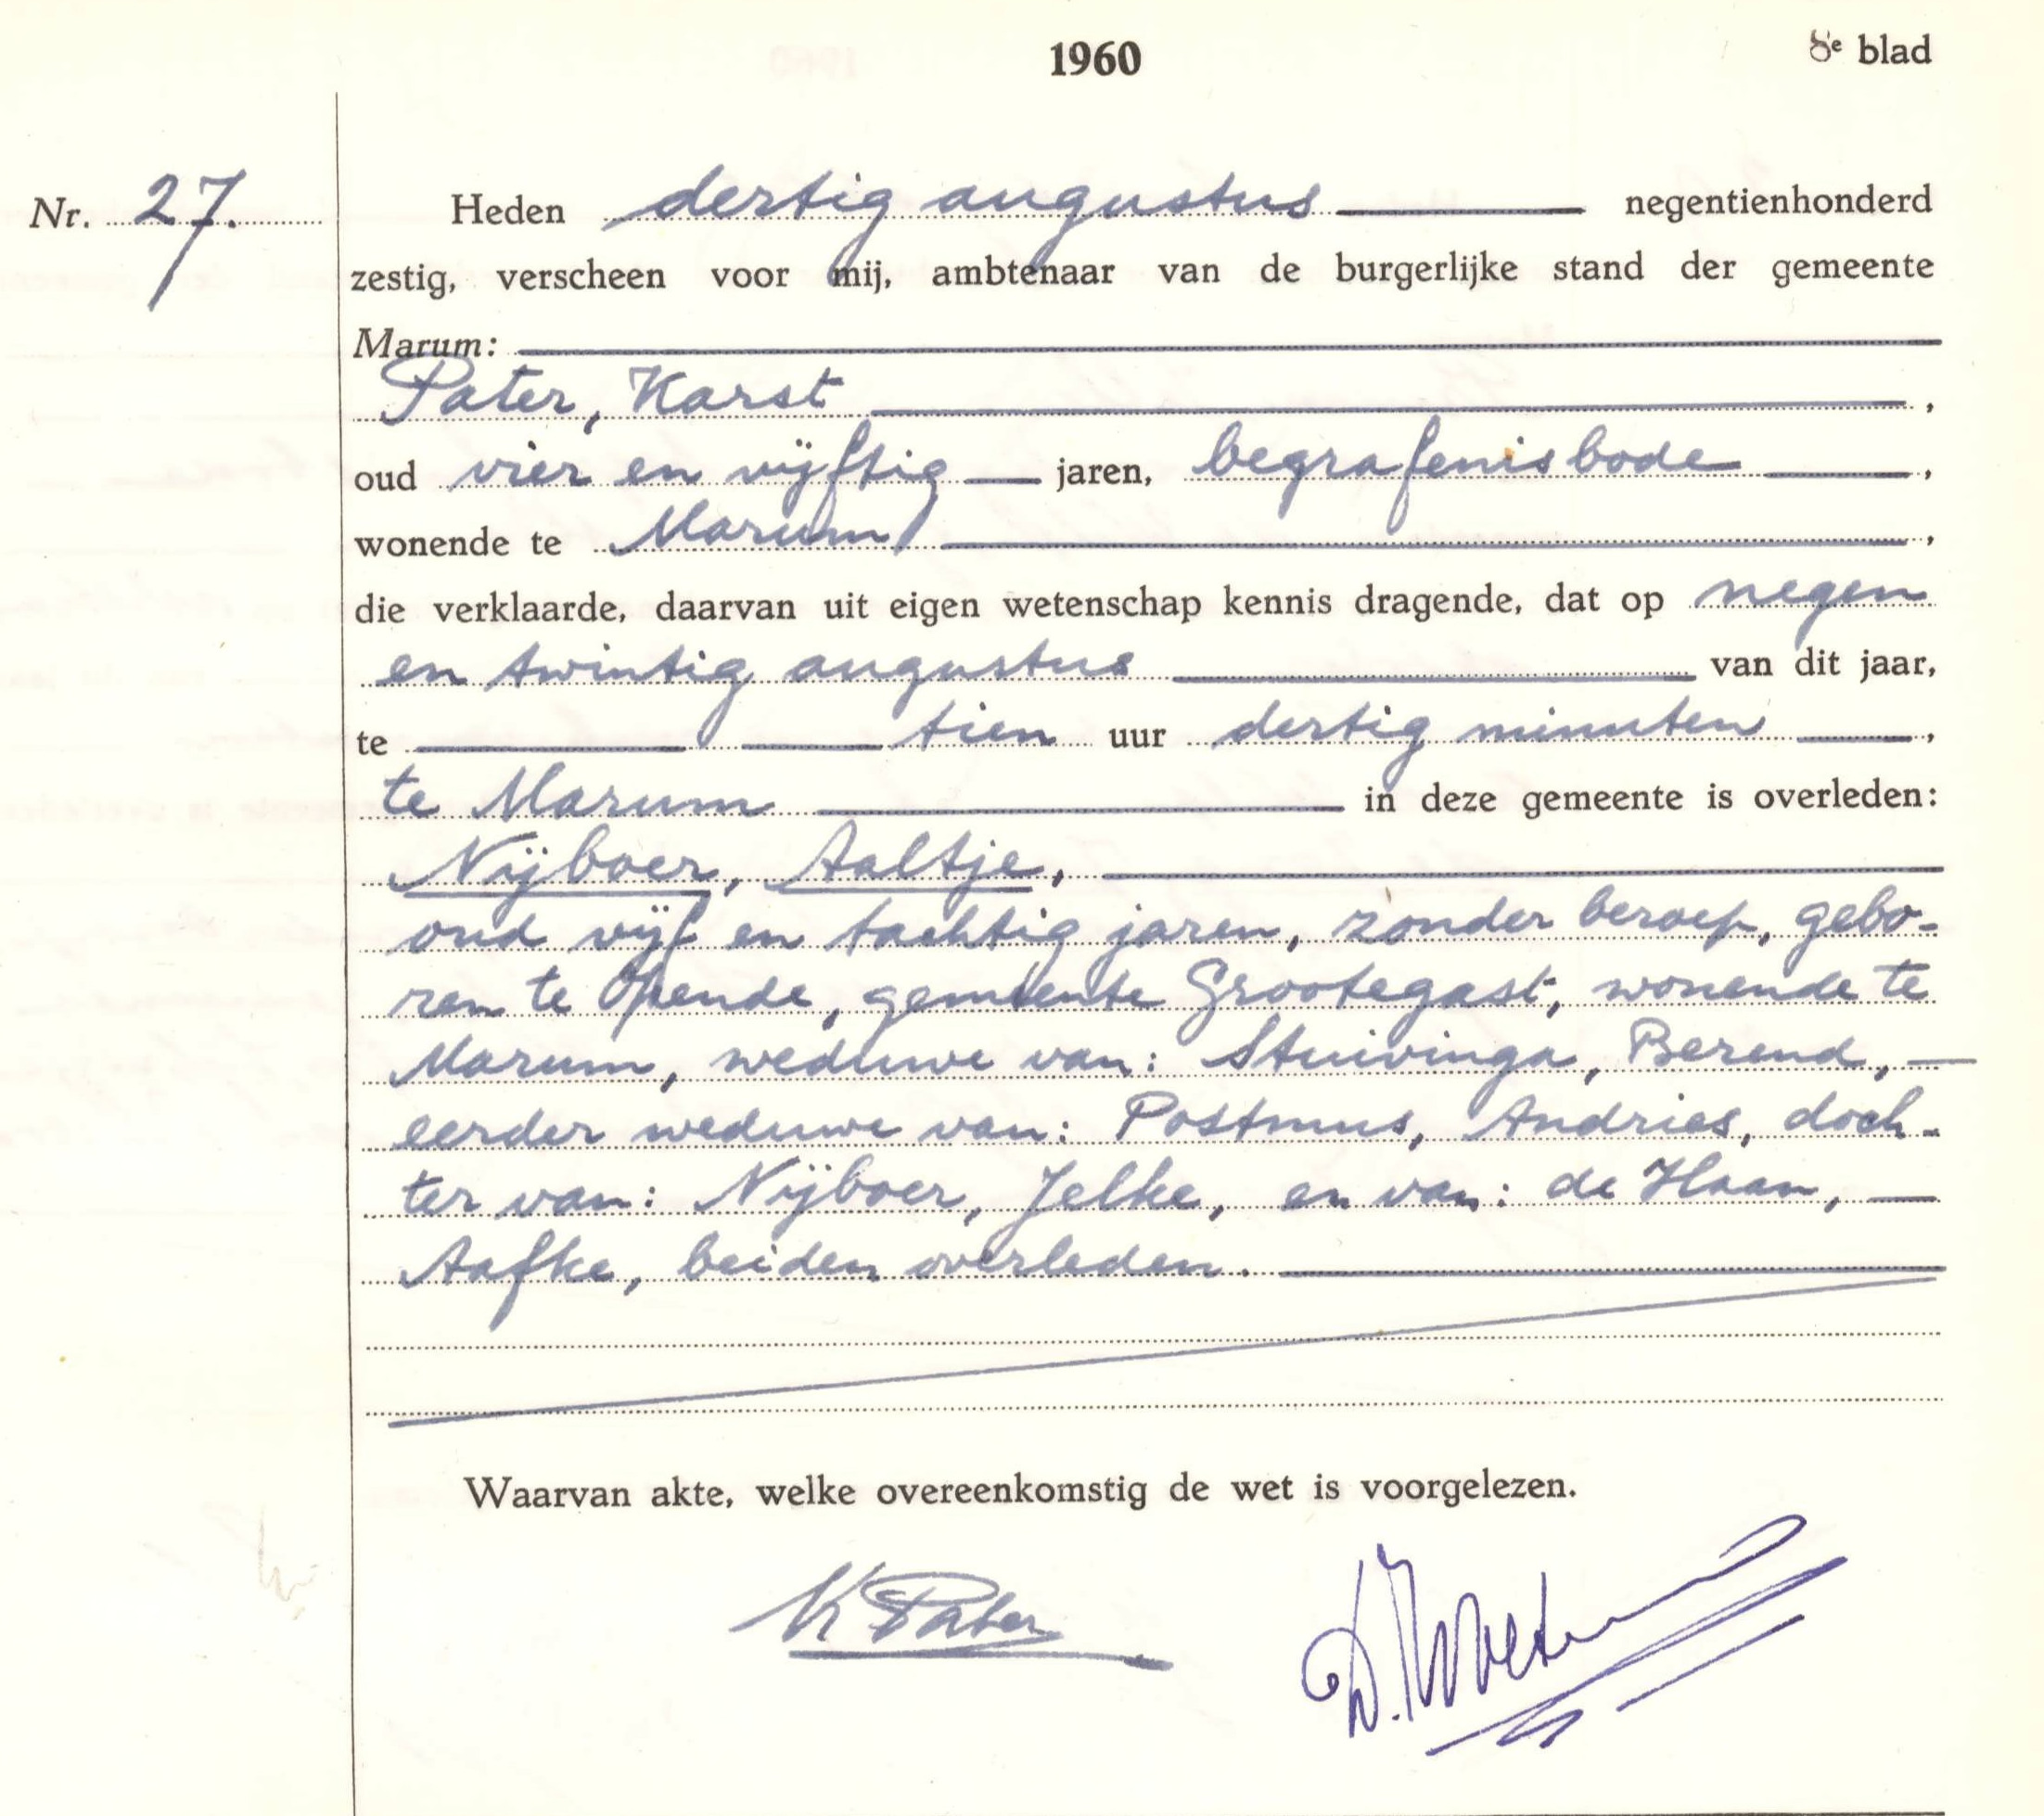 1960
8e blad
Nr. 27.
Heden dertig augustus negentienhonderd
zestig, verscheen voor mij, ambtenaar van de burgerlijke stand der gemeente
Marum:
Pater, Karst ,
oud vier en vijftig jaren, begrafenisbode ,
wonende te Marum ,
die verklaarde, daarvan uit eigen wetenschap kennis dragende, dat op negen
en twintig augustus van dit jaar,
te tien uur dertig minuten ,
te Marum in deze gemeente is overleden:
Nijboer, Aaltje,
oud vijf en tachtig jaren, zonder beroep, gebo-
ren te Opende, gemeente Grootegast, wonende te
Marum, weduwe van: Stuivinga, Berend,
eerder weduwe van: Postmus, Andries, doch-
ter van: Nijboer, Jelke, en van: de Haan,
Aafke, beiden overleden.
Waarvan akte, welke overeenkomstig de wet is voorgelezen.
K Pater